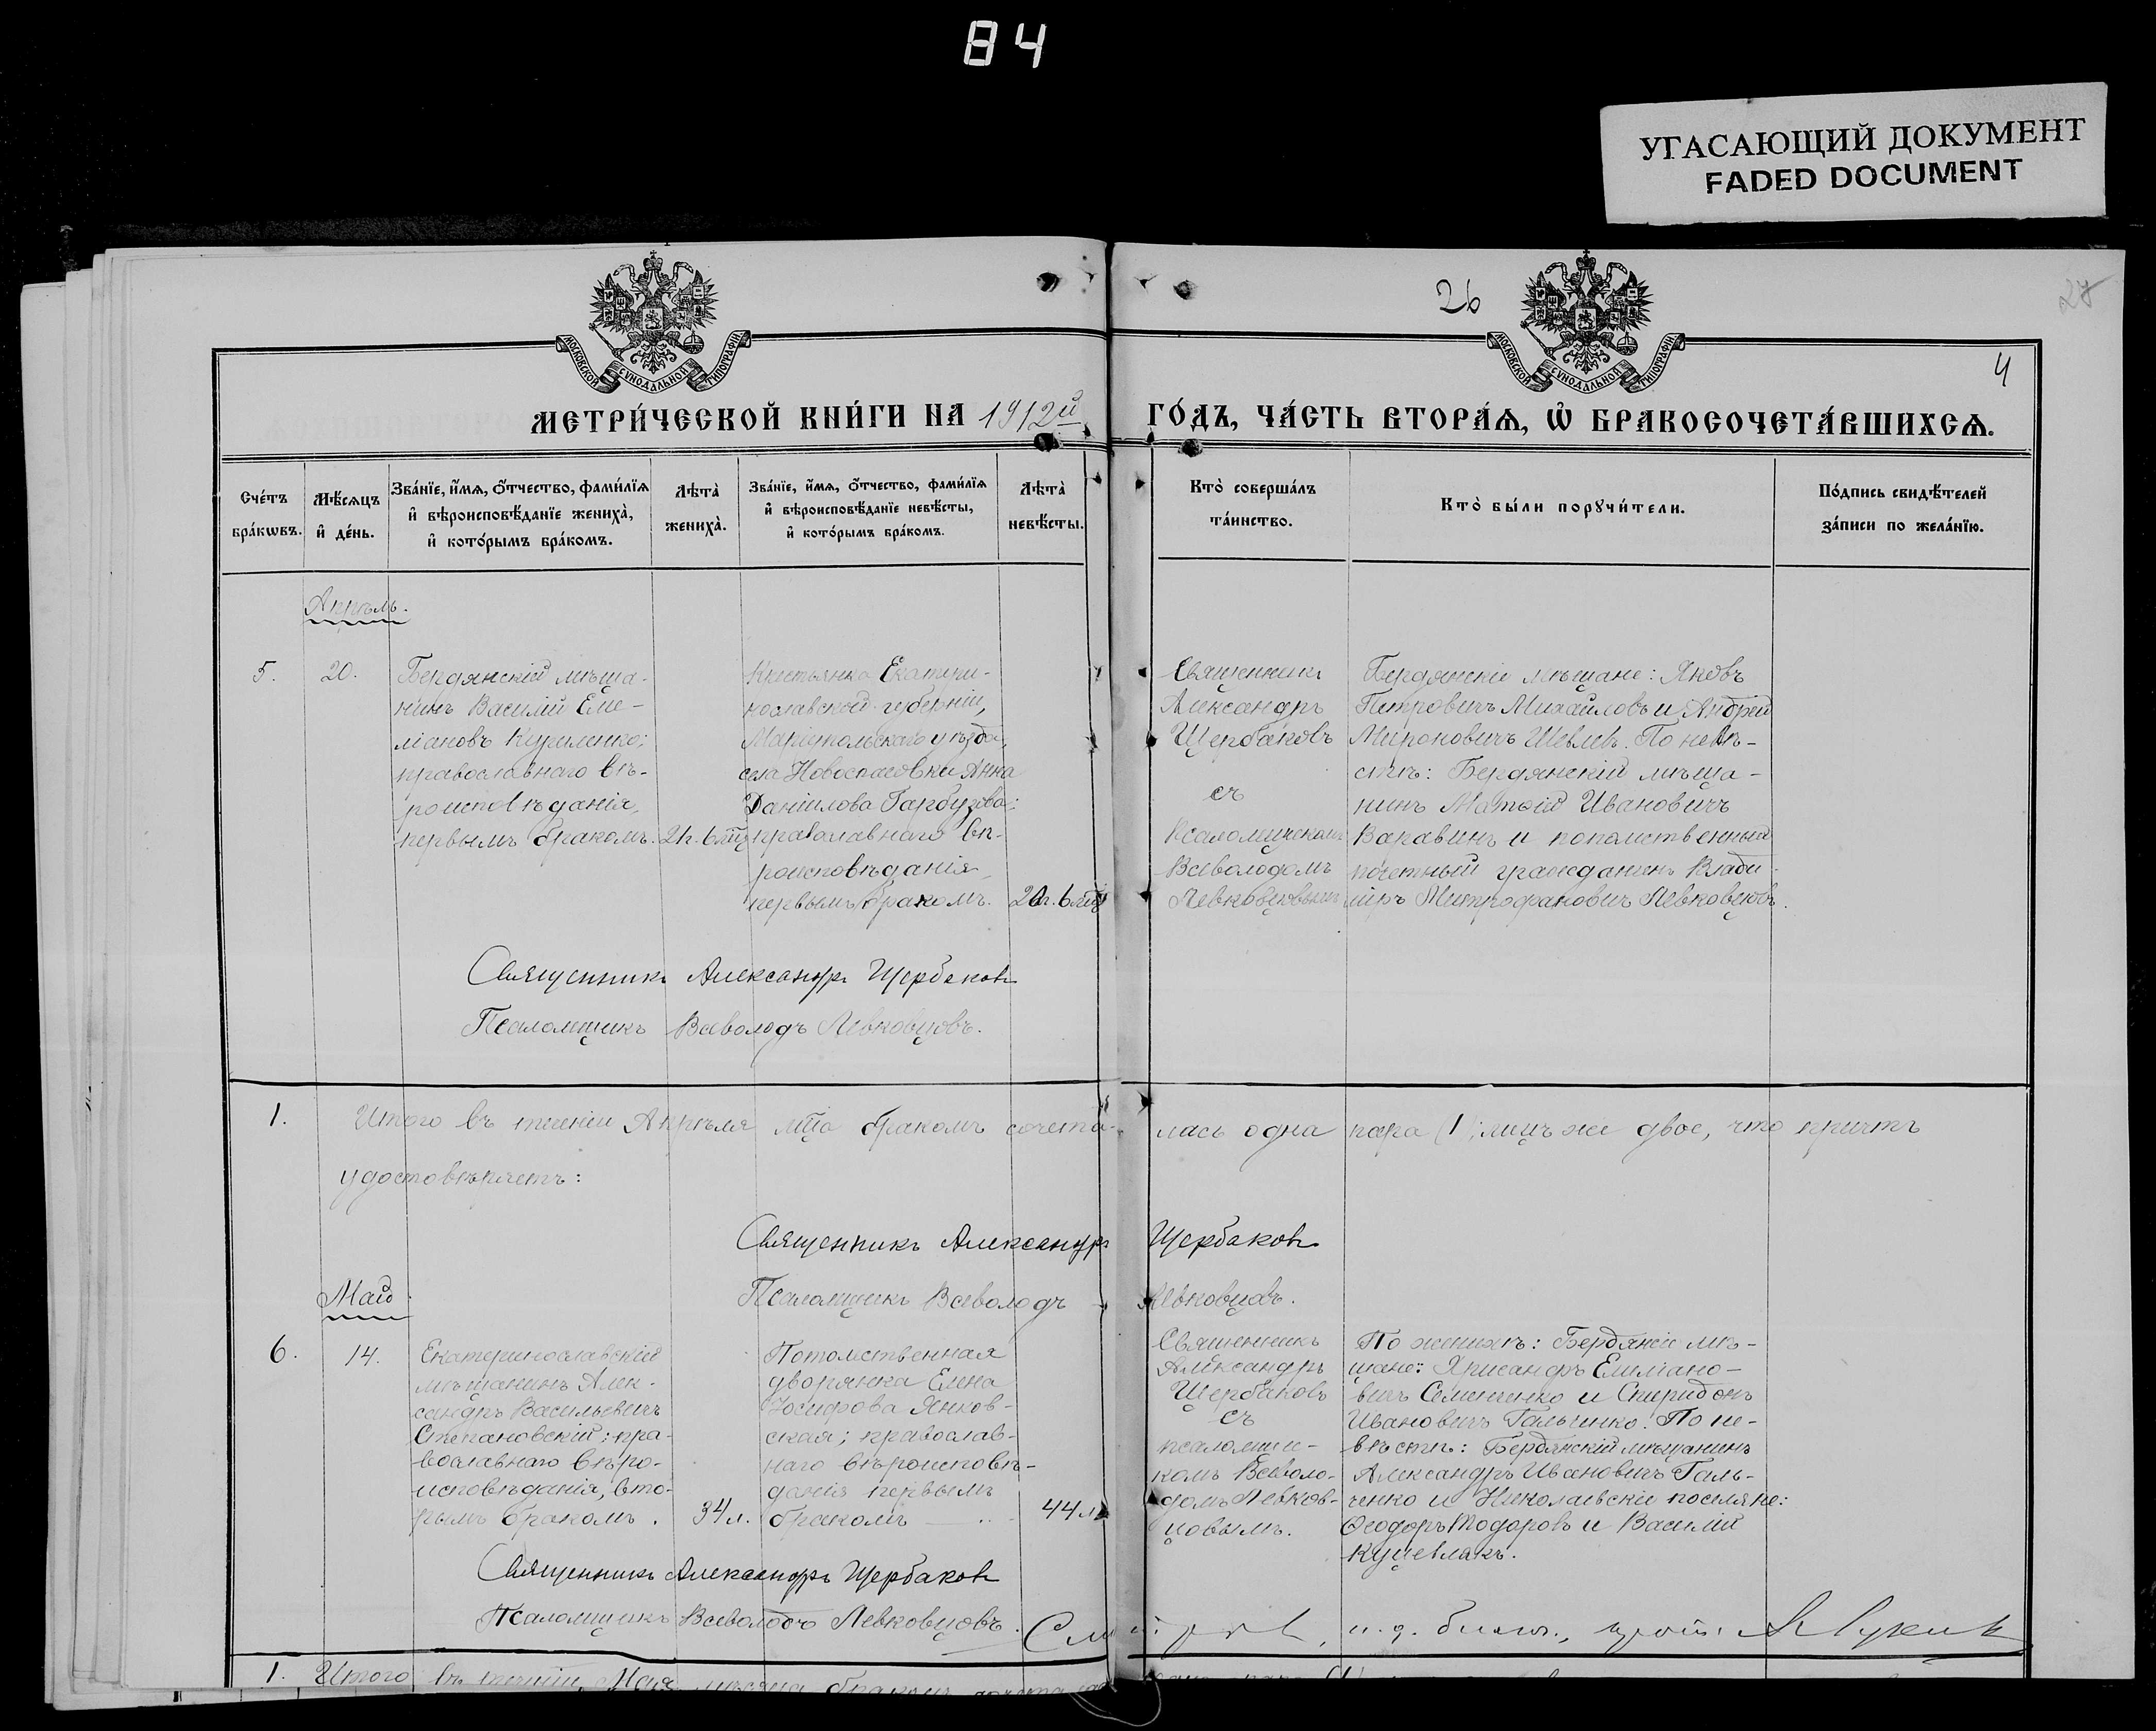 84
УГАСАЮЩИЙ ДОКУМЕНТ
FADED DOCUMENT
МОСКОВСКОЙ СУНОДАЛЬНОЙ ТИПОГРАФІИ
26
МОСКОВСКОЙ СУНОДАЛЬНОЙ ТИПОГРАФІИ
27
4
МЕТРИ́ЧЕСКОЙ КНИ́ГИ НА 1912й
ГО́ДЪ, ЧА́СТЬ ВТОРА́Ѧ, Ѡ҆ БРАКОСОЧЕТА́ВШИХСѦ.
Сче́тъ
бра́кѡвъ.
Мѣ́сѧцъ
и҆ де́нь.
Зва́нїе, и҆́мѧ, ѻ҆́тчество, фами́лїѧ
и҆ вѣроисповѣ́данїе жениха̀,
и҆ кото́рымъ бра́комъ.
Лѣта̀
жениха̀.
Зва́нїе, и҆́мѧ, ѻ҆́тчество, фами́лїѧ
и҆ вѣроисповѣ́данїе невѣ́сты,
и҆ кото́рымъ бра́комъ.
Лѣта̀
невѣ́сты.
Кто̀ соверша́лъ
та́инство.
Кто̀ бы́ли порꙋчи́тели.
По́дпись свидѣ́телей
за́писи по жела́нїю.
Апрѣль.
5.
20.
Бердянскій мѣща-
нинъ Василій Еме-
ліановъ Куриленко;
православнаго вѣ-
роисповѣданія,
первымъ бракомъ.
21г. 6 мц
Крестьянка Екатери-
нославской губерніи,
Маріупольскаго уѣзда,
села Новоспасовки Анна
Даніилова Гарбузова:
православнаго вѣ-
роисповѣданія,
первымъ бракомъ.
20г. 6 мц
Священникъ
Александръ
Щербаковъ
съ
Псаломщикомъ
Всеволодомъ
Левковцовымъ
Бердянскіе мѣщане: Яковъ
Петровичъ Михайловъ и Андрей
Мироновичъ Шевлевъ. По невѣ-
стѣ: Бердянскій мѣща-
нинъ Матѳій Ивановичъ
Варавинъ и потомственный
почетный гражданинъ Влади-
міръ Митрофановичъ Левковцовъ.
Священникъ Александръ Щербаковъ
Псаломщикъ Всеволодъ Левковцовъ.
1. Итого въ теченіи Апрѣля мца бракомъ сочета-
лась одна пара (1), лицъ же двое, что причтъ
удостовѣряетъ:
Священникъ Александръ Щербаковъ
Псаломщикъ Всеволодъ Левковцовъ.
Май.
6.
14.
Екатеринославскій
мѣщанинъ Алек-
сандръ Васильевичъ
Степановскій; пра-
вославнаго вѣро-
исповѣданія, вто-
рымъ бракомъ.
34л.
Потомственная
дворянка Елена
Іосифова Янков-
ская; православ-
наго вѣроисповѣ-
данія первымъ
бракомъ
44л.
Священникъ
Александръ
Щербаковъ
съ
псаломщи-
комъ Всеволо-
домъ Левков-
цовымъ.
По женихѣ: Бердянскіе мѣ-
щане: Хрисандръ Емеліано-
вичъ Семенченко и Спиридонъ
Ивановичъ Гальченко. По не-
вѣстѣ: Бердянскій мѣщанинъ
Александръ Ивановичъ Галь-
ченко и Николаевскіе поселяне:
Ѳеодоръ Тодоровъ и Василій
Кушевлакъ.
Священникъ Александръ Щербаковъ
Псаломщикъ Всеволодъ Левковцовъ.
1. Итого въ теченіи Мая мѣсяца бракомъ